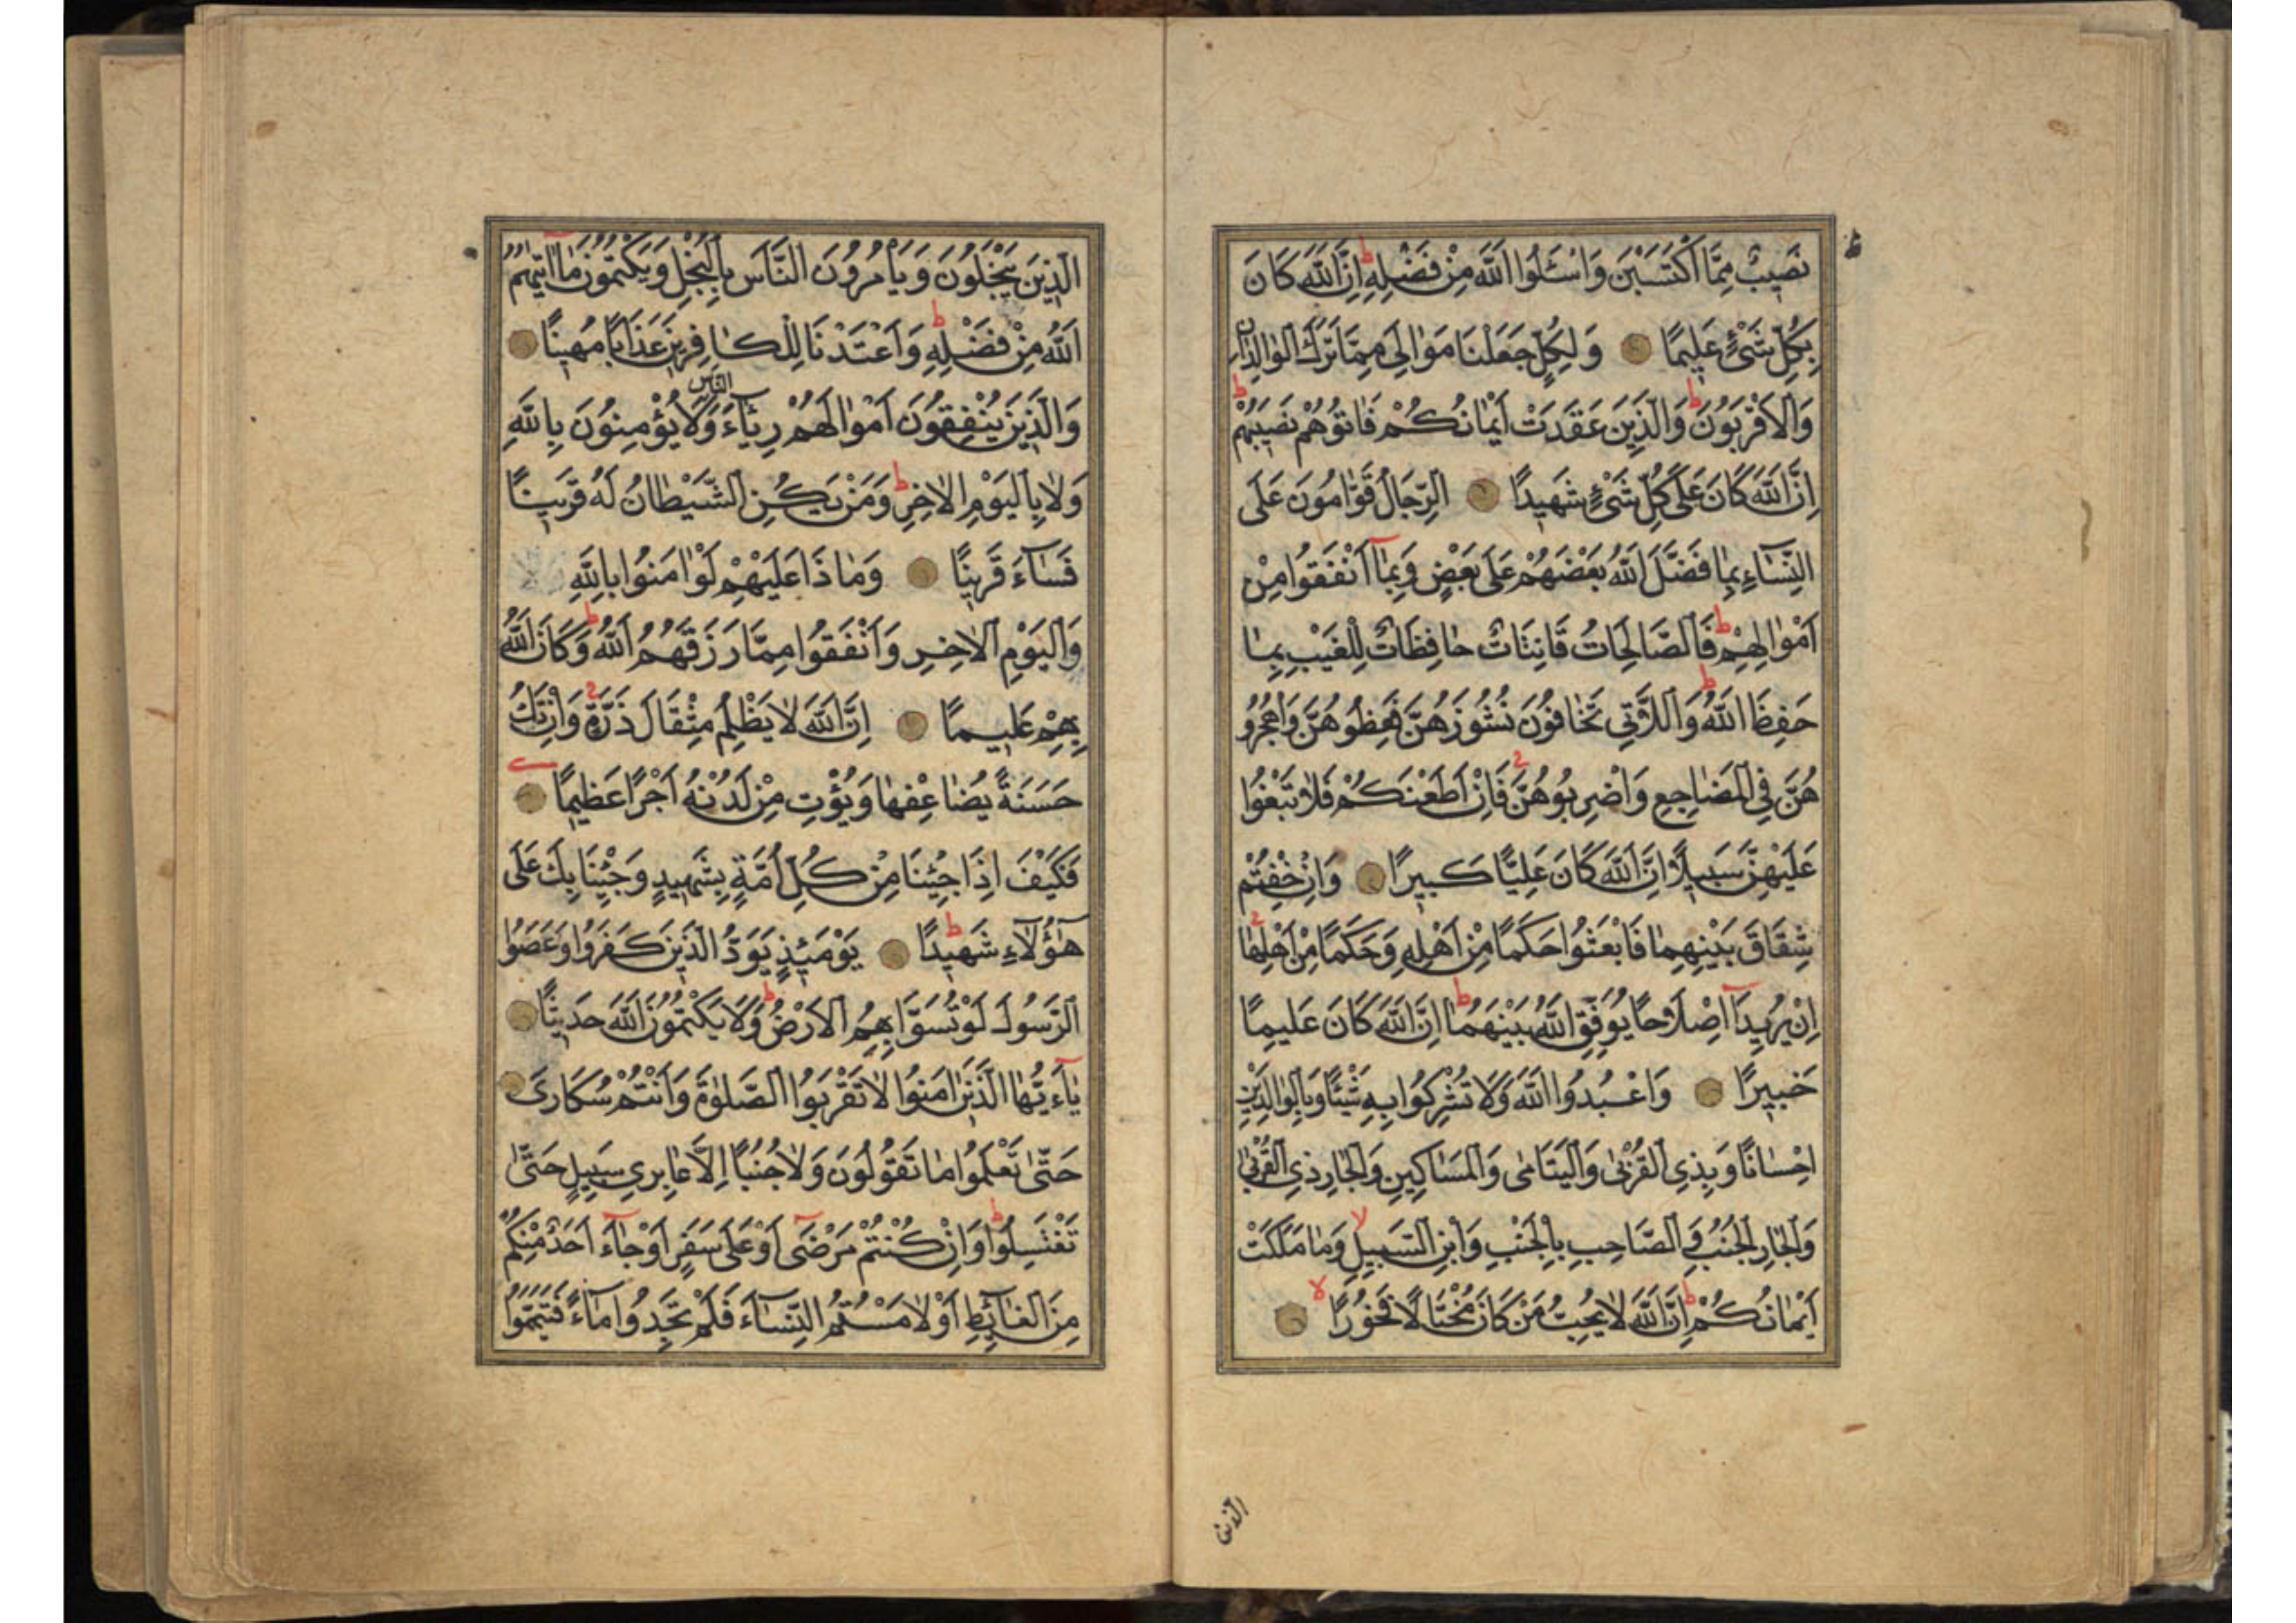 نَصِيبٌ مِمَّا اكْتَسَبْنَ وَاسْئَلُوا اللّٰهَ مِنْ فَضْلِهِ ط اِنَّ اللّٰهَ كَانَ
بِكُلِّ شَيْءٍ عَلِيمًا وَلِكُلٍّ جَعَلْنَا مَوَالِيَ مِمَّا تَرَكَ الْوَالِدَانِ
وَالْاَقْرَبُونَ ط وَالَّذِينَ عَقَدَتْ اَيْمَانُكُمْ فَاٰتُوهُمْ نَصِيبَهُمْ ط
اِنَّ اللّٰهَ كَانَ عَلٰى كُلِّ شَيْءٍ شَهِيدًا اَلرِّجَالُ قَوَّامُونَ عَلَى
النِّسَاءِ بِمَا فَضَّلَ اللّٰهُ بَعْضَهُمْ عَلٰى بَعْضٍ وَبِمَا اَنْفَقُوا مِنْ
اَمْوَالِهِمْ ط فَالصَّالِحَاتُ قَانِتَاتٌ حَافِظَاتٌ لِلْغَيْبِ بِمَا
حَفِظَ اللّٰهُ ط وَاللَّاتِي تَخَافُونَ نُشُوزَهُنَّ فَعِظُوهُنَّ وَاهْجُرُو
هُنَّ فِي الْمَضَاجِعِ وَاضْرِبُوهُنَّ فَاِنْ اَطَعْنَكُمْ فَلَا تَبْغُوا
عَلَيْهِنَّ سَبِيلًا اِنَّ اللّٰهَ كَانَ عَلِيًّا كَبِيرًا وَاِنْ خِفْتُمْ
شِقَاقَ بَيْنِهِمَا فَابْعَثُوا حَكَمًا مِنْ اَهْلِهِ وَحَكَمًا مِنْ اَهْلِهَا
اِنْ يُرِيدَا اِصْلَاحًا يُوَفِّقِ اللّٰهُ بَيْنَهُمَا ط اِنَّ اللّٰهَ كَانَ عَلِيمًا
خَبِيرًا وَاعْبُدُوا اللّٰهَ وَلَا تُشْرِكُوا بِهِ شَيْئًا وَبِالْوَالِدَيْنِ
اِحْسَانًا وَبِذِي الْقُرْبٰى وَالْيَتَامٰى وَالْمَسَاكِينِ وَالْجَارِ ذِي الْقُرْبٰى
وَالْجَارِ الْجُنُبِ وَالصَّاحِبِ بِالْجَنْبِ وَابْنِ السَّبِيلِ لا وَمَا مَلَكَتْ
اَيْمَانُكُمْ ط اِنَّ اللّٰهَ لَا يُحِبُّ مَنْ كَانَ مُخْتَالًا فَخُورًا لا
الذين
الَّذِينَ يَبْخَلُونَ وَيَأْمُرُونَ النَّاسَ بِالْبُخْلِ وَيَكْتُمُونَ مَا اٰتٰيهُمُ
اللّٰهُ مِنْ فَضْلِهِ ط وَاَعْتَدْنَا لِلْكَافِرِينَ عَذَابًا مُهِينًا
وَالَّذِينَ يُنْفِقُونَ اَمْوَالَهُمْ رِئَاءَ النَّاسِ وَلَا يُؤْمِنُونَ بِاللّٰهِ
وَلَا بِالْيَوْمِ الْاٰخِرِ ط وَمَنْ يَكُنِ الشَّيْطَانُ لَهُ قَرِينًا
فَسَاءَ قَرِينًا وَمَاذَا عَلَيْهِمْ لَوْ اٰمَنُوا بِاللّٰهِ
وَالْيَوْمِ الْاٰخِرِ وَاَنْفَقُوا مِمَّا رَزَقَهُمُ اللّٰهُ ط وَكَانَ اللّٰهُ
بِهِمْ عَلِيمًا اِنَّ اللّٰهَ لَا يَظْلِمُ مِثْقَالَ ذَرَّةٍ وَاِنْ تَكُ
حَسَنَةً يُضَاعِفْهَا وَيُؤْتِ مِنْ لَدُنْهُ اَجْرًا عَظِيمًا
فَكَيْفَ اِذَا جِئْنَا مِنْ كُلِّ اُمَّةٍ بِشَهِيدٍ وَجِئْنَا بِكَ عَلٰى
هٰؤُلَاءِ شَهِيدًا ط يَوْمَئِذٍ يَوَدُّ الَّذِينَ كَفَرُوا وَعَصَوُا
الرَّسُولَ لَوْ تُسَوّٰا بِهِمُ الْاَرْضُ ط وَلَا يَكْتُمُونَ اللّٰهَ حَدِيثًا
يَاءَيُّهَا الَّذِينَ اٰمَنُوا لَا تَقْرَبُوا الصَّلٰوةَ وَاَنْتُمْ سُكَارٰى
حَتّٰى تَعْلَمُوا مَا تَقُولُونَ وَلَا جُنُبًا اِلَّا عَابِرِي سَبِيلٍ حَتّٰى
تَغْتَسِلُوا ط وَاِنْ كُنْتُمْ مَرْضٰى اَوْ عَلٰى سَفَرٍ اَوْ جَاءَ اَحَدٌ مِنْكُمْ
مِنَ الْغَائِطِ اَوْ لَامَسْتُمُ النِّسَاءَ فَلَمْ تَجِدُوا مَاءً فَتَيَمَّمُوا